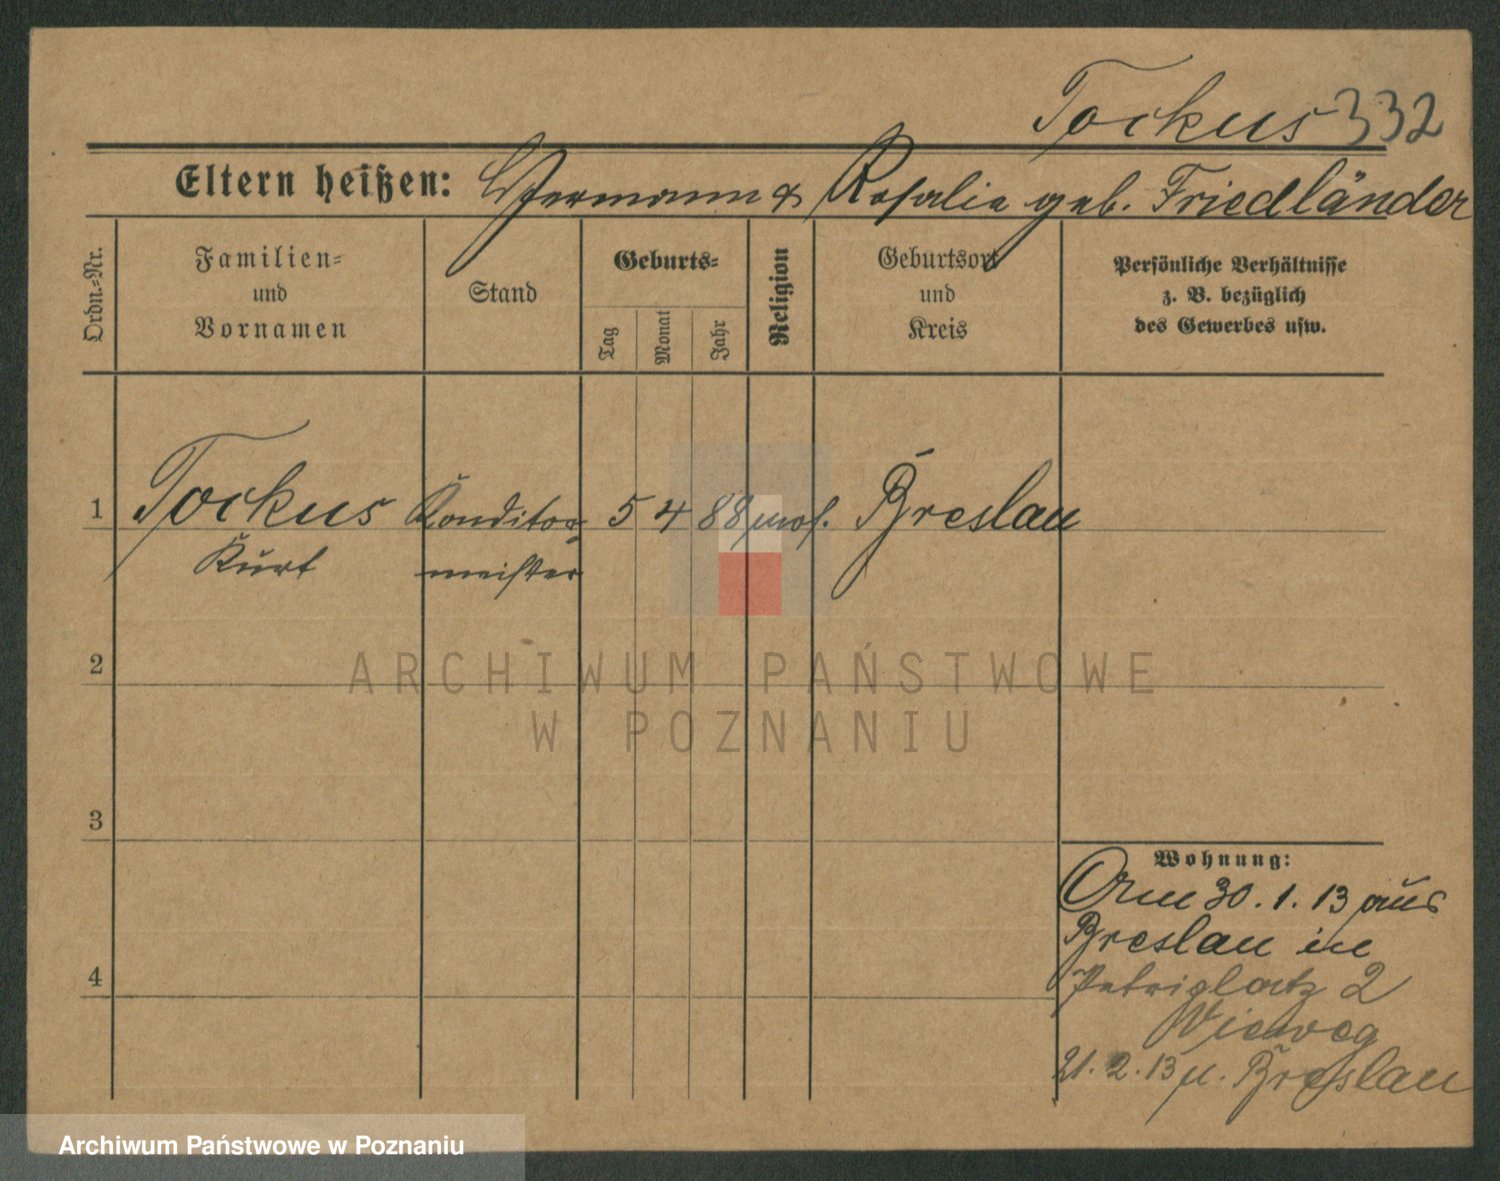 Tockus 332
Eltern heißen: Hermann & Rosalie geb. Friedländer
Ordn.-Nr.
Familien-
und
Vornamen
Stand
Geburts-
Tag
Monat
Jahr
Religion
Geburtsort
und
Kreis
Persönliche Verhältnisse
z. B. bezüglich
des Gewerbes usw.
1 Tockus Konditor- 5 4 88 mos. Breslau
Kurt meister
2
3
4
Wohnung:
Am 30. 1. 13 aus
Breslau in
Petriplatz 2
Vieweg
21. 2. 13 n. Breslau
ARCHIWUM PAŃSTWOWE
W POZNANIU
Archiwum Państwowe w Poznaniu